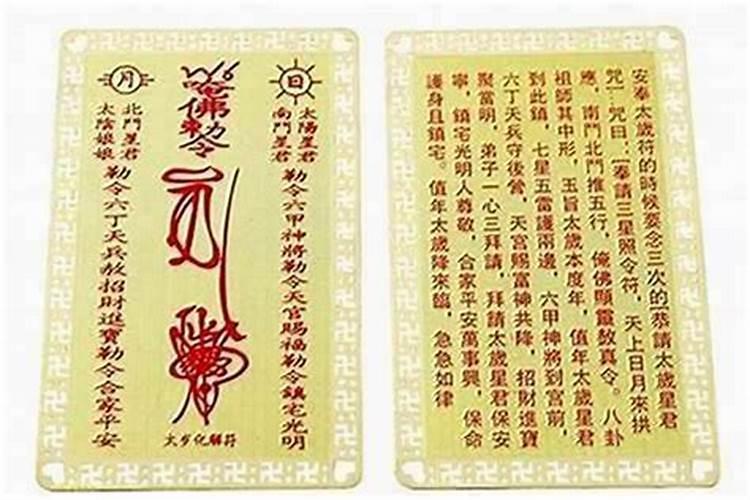 日
太陽星君
南鬥星君
勒令六甲神將勒令天官賜福勒令鎮宅光明
佛勅令
太歲化解符
月
北鬥星君
太陰娘娘
勒令六丁天兵敕招財進寶勒令合家平安
安奉太歲符的時候要念三次的[恭請太歲星君
咒]…咒曰:[奉請三星照令符,天上日月來拱
應,南鬥北鬥推五行,俺佛顯靈敕真令。八卦
祖師其中形,玉旨太歲本度年,值年太歲星君
到此鎮,七星五雷護兩邊,六甲神將到宮前,
六丁天兵守後營,天官賜富神共降,招財進寶
聚當明,弟子一心三拜請,拜請太歲星君保安
寧,鎮宅光明人尊敬,合家平安萬事興,保命
護身且鎮宅。值年太歲降來臨,急急如律